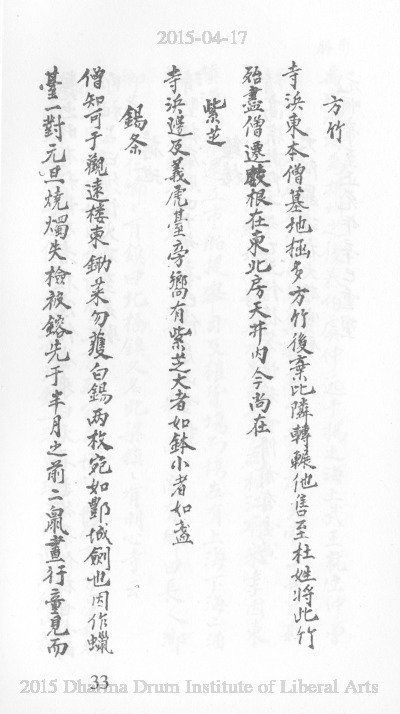 2015-04-17
方竹
寺浜東本僧墓地極多方竹後棄比隣轉輾他售至杜姓將此竹
殆盡僧遷數根在東北房天井内今尚在
紫芝
寺浜邊及義虎臺字嚮有紫芝大者如鉢小者如盞
錫条
僧知可于觀遠楼東鋤菜勿蒦白錫两枚宛如酆城劍也因作蠟
臺一對元旦燒燭失檢被鎔先于半月之前二鼠晝行童見而
33
2015 Dharma Drum Institute of Liberal Arts